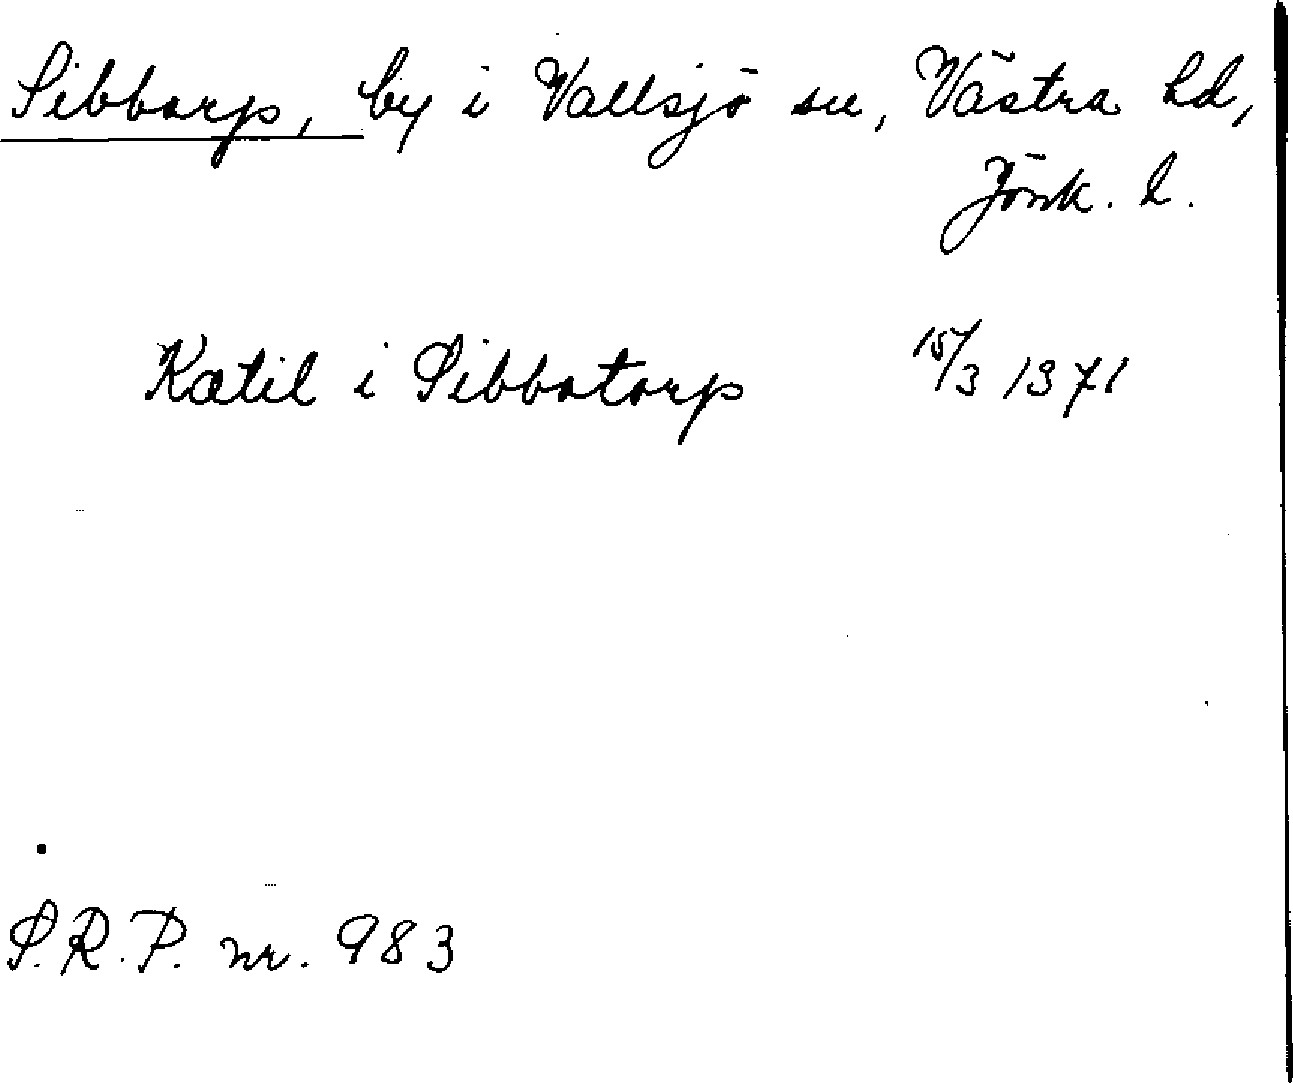 Sibbarp, by i Vallsjö sn, Västra hd,
Jönk. l.
Katil i Sibbatorp 15/3 1371
S.R.P. nr. 983